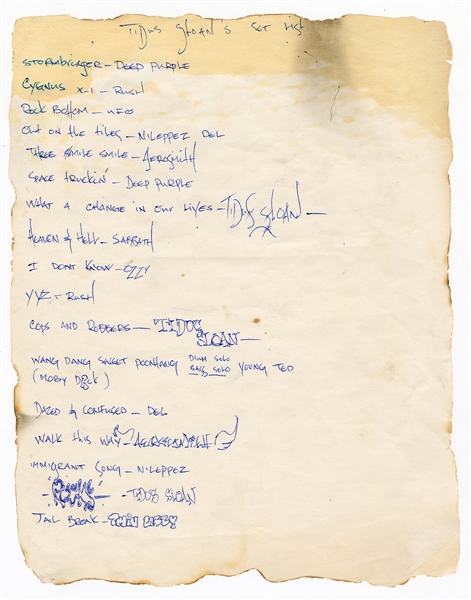 TIDUS SLOAN'S SET LIST
STORMBRINGER - DEEP PURPLE
CYGNUS X-1 - RUSH
ROCK BOTTOM - UFO
OUT ON THE TILES - NILEPPEZ DEL
THREE MILE SMILE - AEROSMITH
SPACE TRUCKIN' - DEEP PURPLE
WHAT A CHANGE IN OUR LIVES - TIDUS SLOAN -
HEAVEN & HELL - SABBATH
I DONT KNOW - OZZY
YYZ - RUSH
COPS AND ROBBERS - TIDUS SLOAN -
WANG DANG SWEET POONTANG DRUM SOLO BASS SOLO YOUNG TED
(MOBY DICK)
DAZED & CONFUSED - DEL
WALK THIS WAY - AEROSMITH
IMMIGRANT SONG - NILEPPEZ
- TIDUS SLOAN
JAIL BREAK - THIN LIZZY